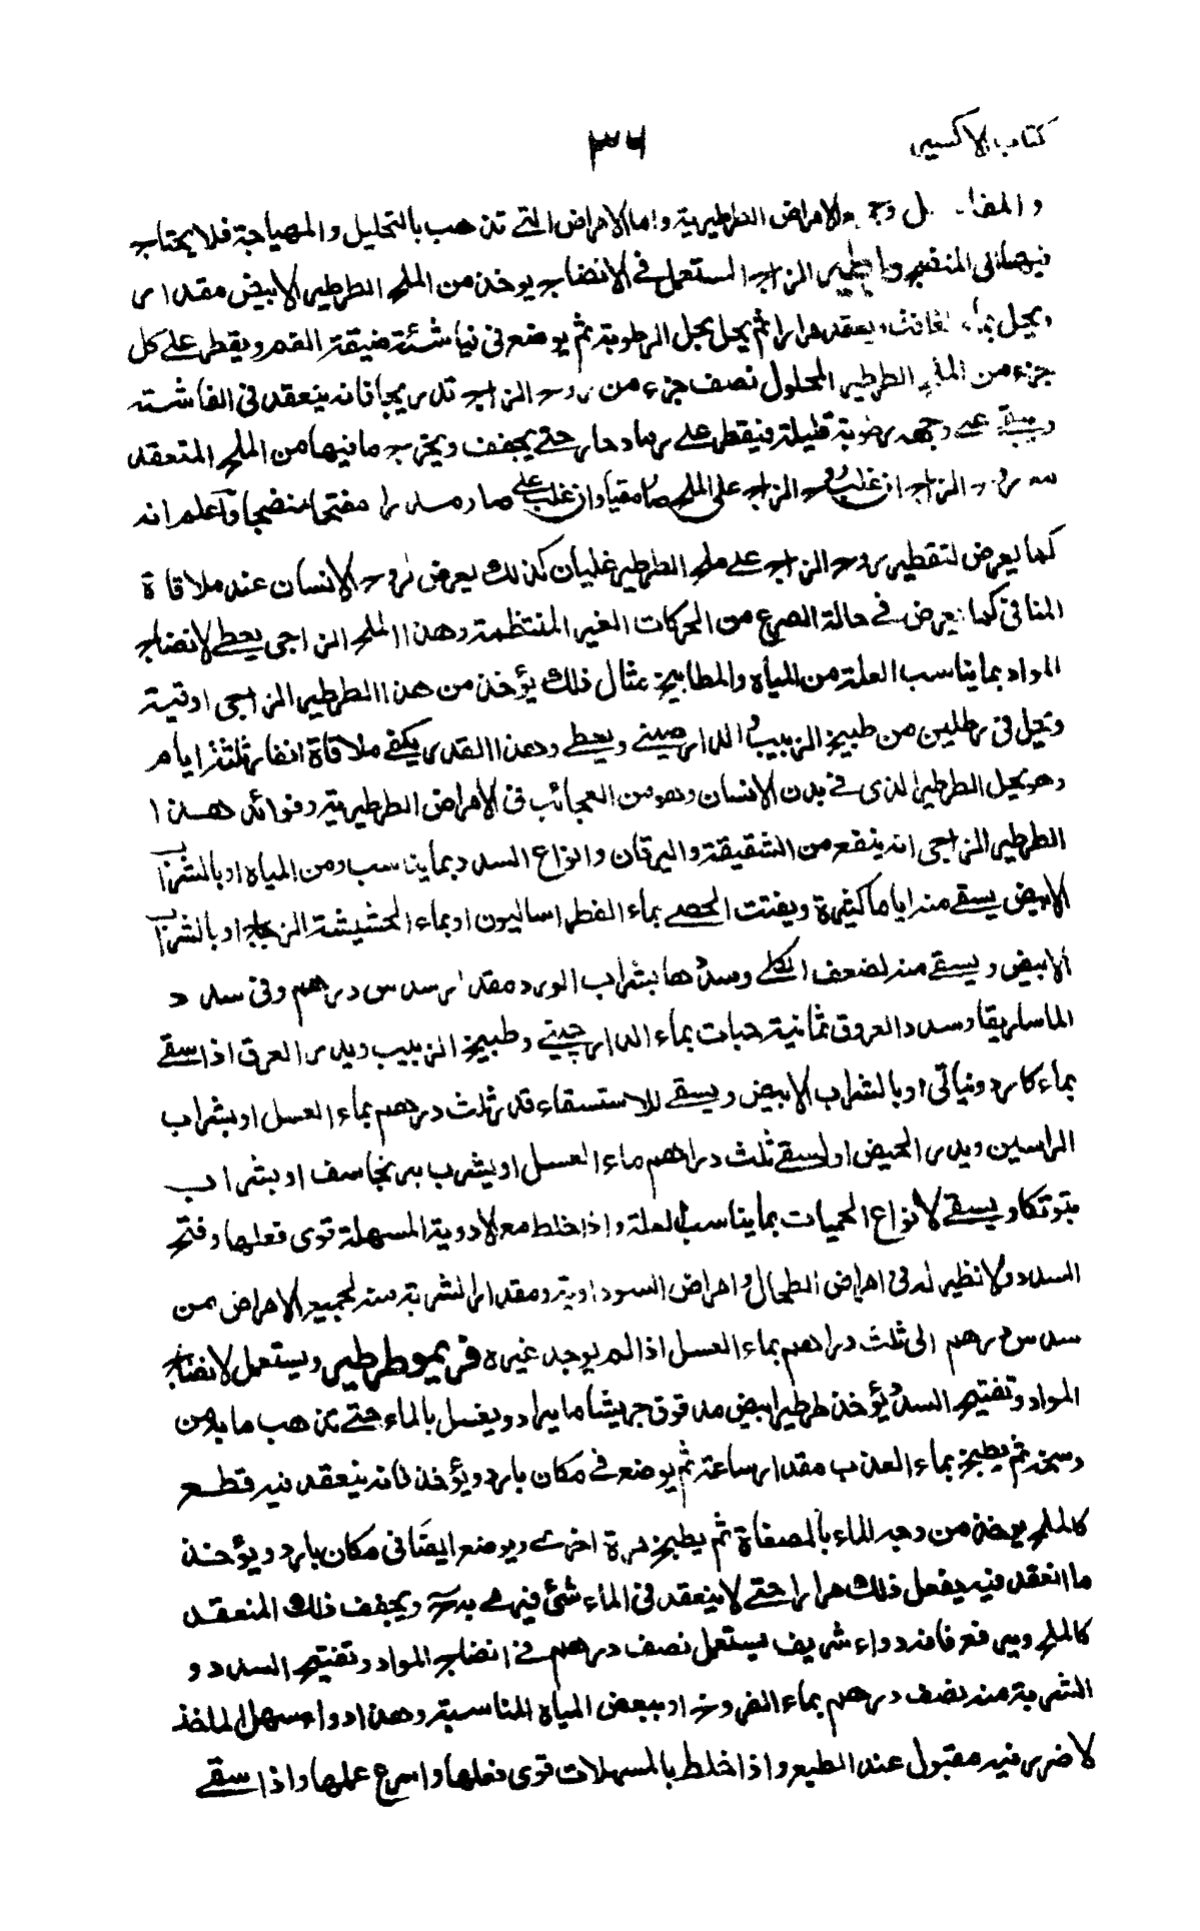 كتاب الاكسير
٣٦
و المفا ل وجع والامراض الطرطيرية واما الامراض التى تذهب بالتحليل والمهياجة فلا يحتاج
فيها الى المنضج والطرطير الزاجى المستعمل فى الانضاج يوخذ من الملح الطرطير الابيض مقدار
ويحل بماء غافث ويعقد مرارا ثم يحل بحل الرطوبة ثم يوضع فى نياشئة ضيقة الفم ويقطر على كل
جزء من الملح الطرطير المحلول نصف جزء من روح الزاج تدريجا فانه ينعقد فى الفاشته
ويبقى على وجهه رطوبة قليلة فيقطر على رماد حار حتى يجفف ويخرج ما فيها من الملح المنعقد
من روح الزاج ان غلب روح الزاج على الملح صار مقيا وان غلب على صار مدرا مفتحا منضجا وآعلم انه
كما يعرض لتقطير روح الزاج على ملح الطرطير غليان كذلك يعرض لروح الانسان عند ملاقاة
المنافى كما يعرض فى حالة الصرع من الحركات الغير المنتظمة وهذا الملح الزاجى يعطى لانضاج
المواد بما يناسب العلة من المياه والمطابيخ مثال ذلك يؤخذ من هذا الطرطير الزاجى اوقية
وتحل فى رطلين من طبيخ الزبيب و الدارصينى ويعطى وهذا القدر يكفى ملاقاة انفار ثلثة ايام
وهو يحل الطرطير الذى فى بدن الانسان وهو من العجائب فى الامراض الطرطيرية وفوائد هذا
الطرطير الزاجى انه ينفع من الشقيقة واليرقان وانواع السدد بما يناسب ومن المياه او بالشراب
الابيض يسقى منه اياما كثيرة ويفتت الحصى بماء الفطراساليون او بماء الحشيشة الزجاج او بالشراب
الابيض ويسقى منه لضعف الكلى وسددها بشراب الورد مقدار سدس درهم وفى سدد
الماساريقا وسدد العروق ثمانية حبات بماء الدارچينى وطبيخ الزبيب ويدر العرق اذا سقى
بماء كاردونياتى او بالشراب الابيض ويسقى للاستسقاء قدر ثلث درهم بماء العسل او بشراب
الراسين ويدر الحيض اولسقى ثلث دراهم ماء العسل او يشرب برنجاسف او بشراب
بتوتكا ويسقى لانواع الحميات بما يناسب العلة واذا خلط مع الادوية المسهلة قوى فعلها وفتح
السدد ولا نظير له فى امراض الطحال وامراض السوداوية ومقدار الشربة منه لجميع الامراض من
سدس درهم الى ثلث دراهم بماء العسل اذا لم يوجد غيره قريموطرطير ويستعمل لانضاج
المواد وتفتيح السدد يؤخذ طرطير ابيض مدقوق جريشا ما يراد ويغسل بالماء حتى تذهب ما به من
وسخه ثم يطبخ بماء العذب مقدار ساعة ثم يوضع فى مكان بارد ويؤخذ فانه ينعقد فيه قطع
كالملح يوخذ من وجه الماء بالمصفاة ثم يطبخ مرة اخرى ويوضع ايضا فى مكان بارد ويؤخذ
ما انعقد فيه يفعل ذلك مرارا حتى لا ينعقد فى الماء شئ فيرمى به ويجفف ذلك المنعقد
كالملح ويرفع فانه دواء شريف يستعمل نصف درهم فى انضاج المواد وتفتيح السدد و
الشربة منه نصف درهم بماء الفروخ او ببعض المياه المناسبة وهذا دواء سهل الملخذ
لا ضرر فيه مقبول عند الطبع واذا خلط بالمسهلات قوى فعلها واسرع عملها واذا سقى